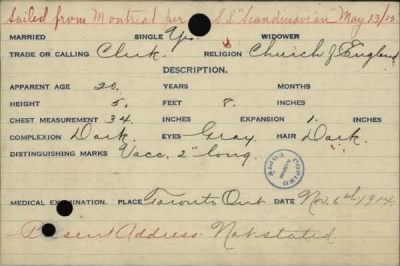 Sailed from Montreal per S.S. "Scandinavian" May 13/15
MARRIED SINGLE Yes. WIDOWER
TRADE OR CALLING Clerk. RELIGION Church of England
DESCRIPTION.
APPARENT AGE 20. YEARS MONTHS
HEIGHT 5. FEET 8. INCHES
CHEST MEASUREMENT 34 INCHES EXPANSION 1. INCHES
COMPLEXION Dark. EYES Gray. HAIR Dark.
DISTINGUISHING MARKS Vacc. 2" long.
COPIED
MEDICAL EXAMINATION. PLACE Toronto Ont DATE Nov. 6th, 1914
Present Address. Not stated